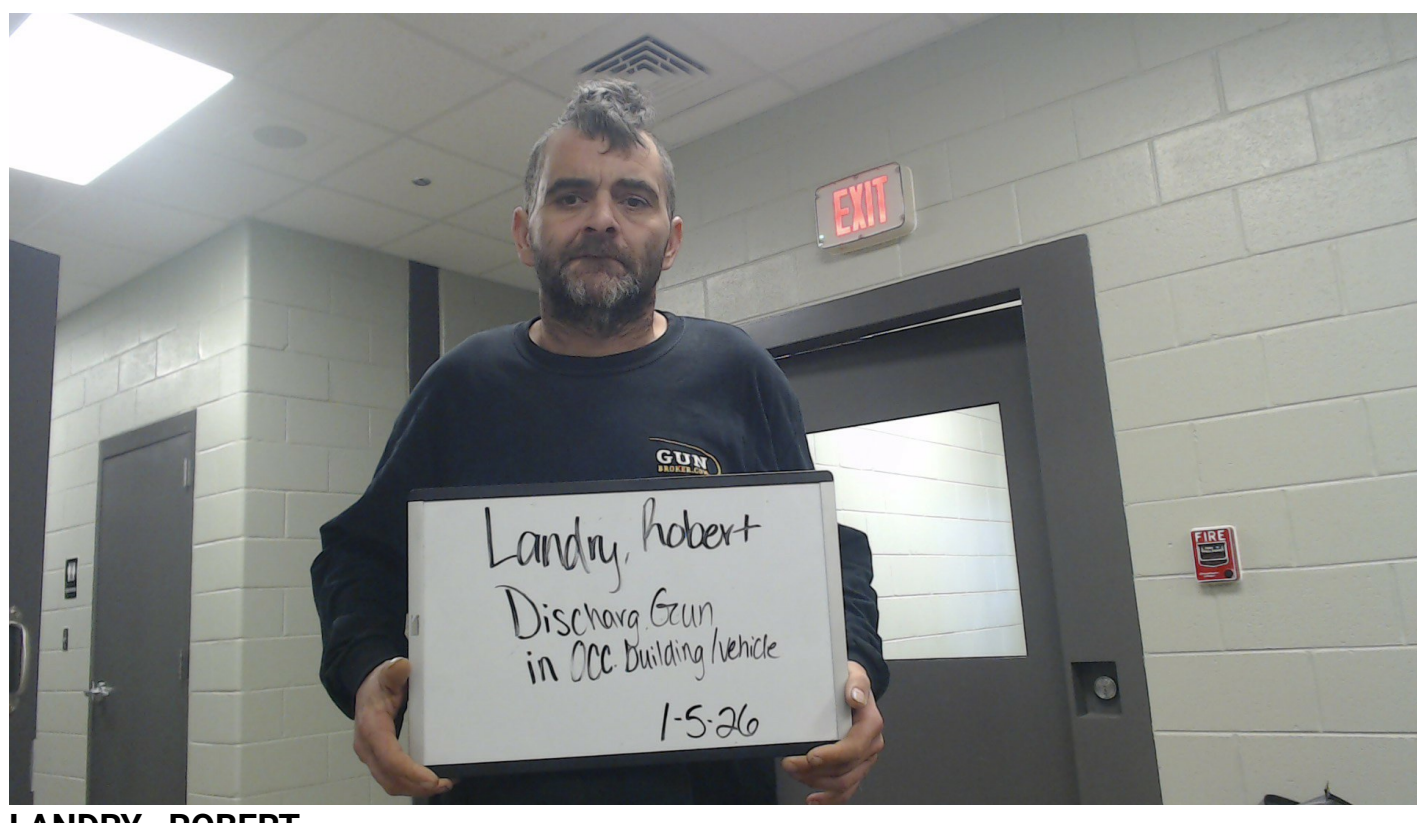 EXIT
GUN
BROKER.COM
FIRE
Landry, Robert
Discharg. Gun
in OCC. Building/vehicle
1-5-26
LANDRY, ROBERT